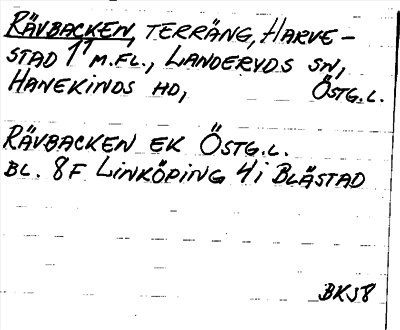 RÄVBACKEN, TERRÄNG, HARVE-
STAD 1¹ M.FL., LANDERYDS SN,
HANEKINDS HD, ÖSTG.L.
RÄVBACKEN EK ÖSTG.L.
BL. 8F LINKÖPING 4i BLÄSTAD
BKJ8